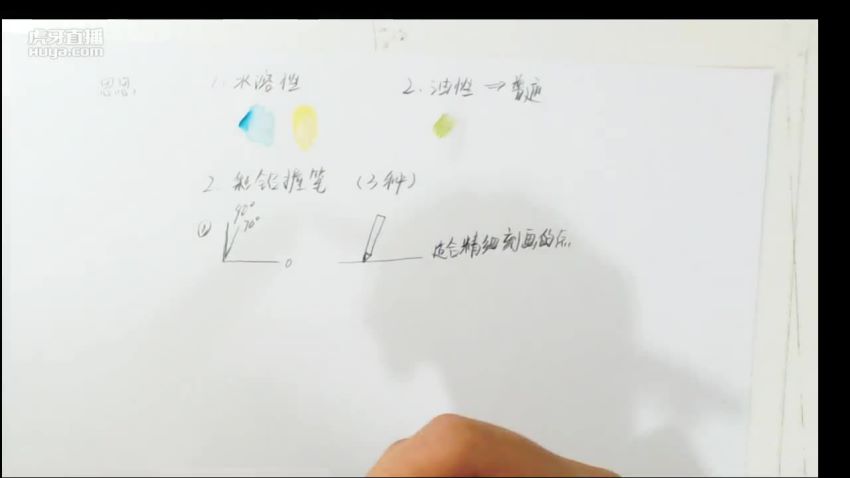 虎牙直播
Huya.com
思思.
1. 水溶性
2. 油性 → 普通
2. 彩铅握笔 (3种)
① 90°
70°
0
适合精细刻画的点